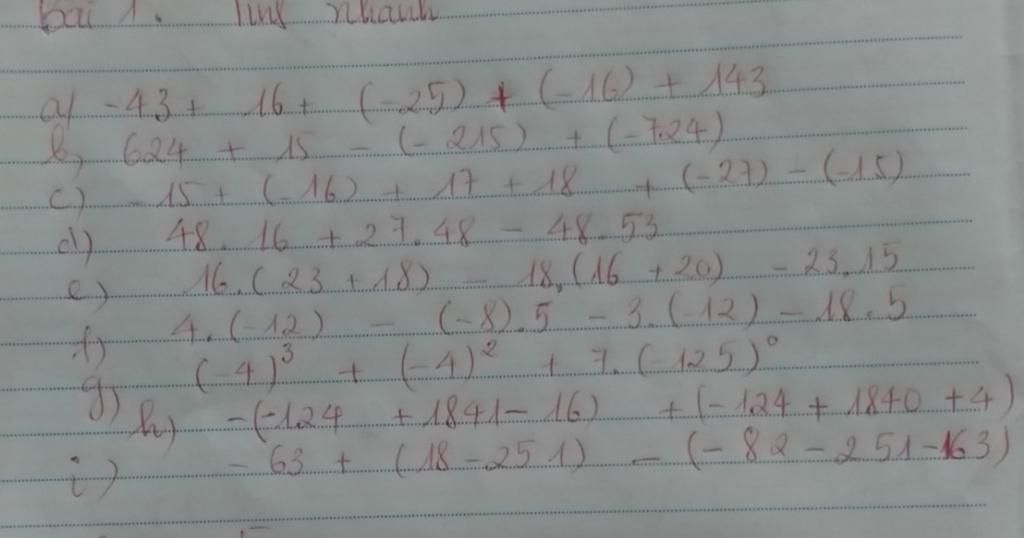 bài 1. Tính nhanh
a) -43 + 16 + (-25) + (-16) + 143
b, 624 + 15 - (-215) + (-724)
c) -15 + (-16) + 17 + 18 + (-27) - (-15)
d) 48.16 + 27.48 - 48.53
e) 16.(23 + 18) - 18.(16 + 20) - 23.15
f) 4.(-12) - (-8).5 - 3.(-12) - 18.5
g) (-4)³ + (-4)² + 7.(-125)⁰
h) -(-124 + 1841 - 16) + (-124 + 1840 + 4)
i) -63 + (18 - 251) - (-82 - 251 - 163)